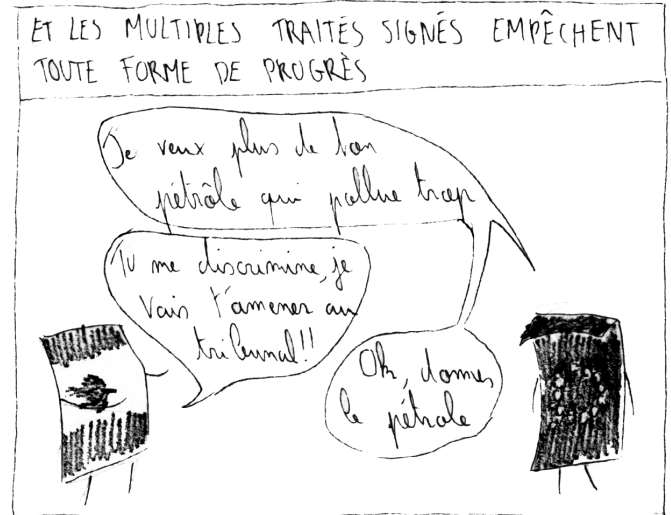 ET LES MULTIPLES TRAITÉS SIGNÉS EMPÊCHENT
TOUTE FORME DE PROGRÈS
Je veux plus de ton
pétrôle qui pollue trop
Tu me discrimine, je
vais t'amener au
tribunal!!
Ok, donnes
le pétrole